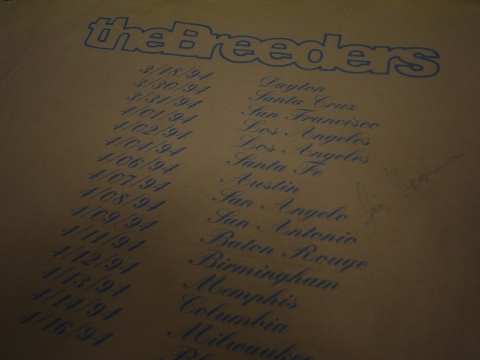 theBreeders
3/18/94 Dayton
3/30/94 Santa Cruz
3/31/94 San Francisco
4/01/94 Los Angeles
4/02/94 Los Angeles
4/04/94 Santa Fe
4/06/94 Austin
4/07/94 San Angelo
4/08/94 San Antonio
4/09/94 Baton Rouge
4/11/94 Birmingham
4/12/94 Memphis
4/13/94 Columbia
4/14/94 Milwaukee
4/16/94